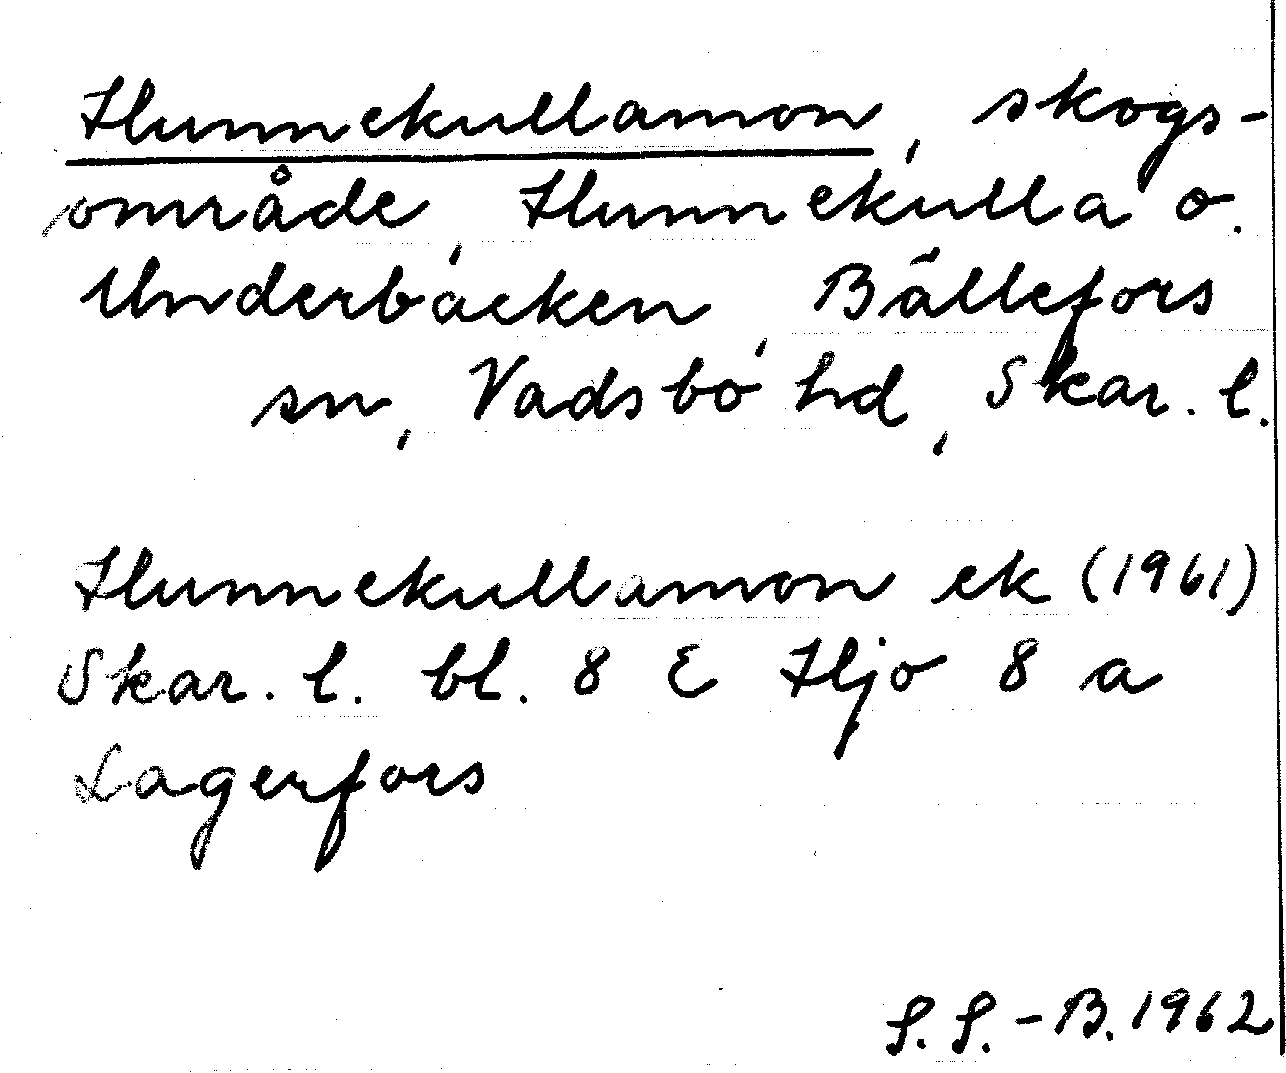 Hunnekullamon, skogs-
område, Hunnekulla o.
Underbäcken, Bällefors
sn, Vadsbo hd, Skar. l.
Hunnekullamon ek (1961)
Skar. l. bl. 8 E Hjo 8 a
Lagerfors
S. S. - B. 1962